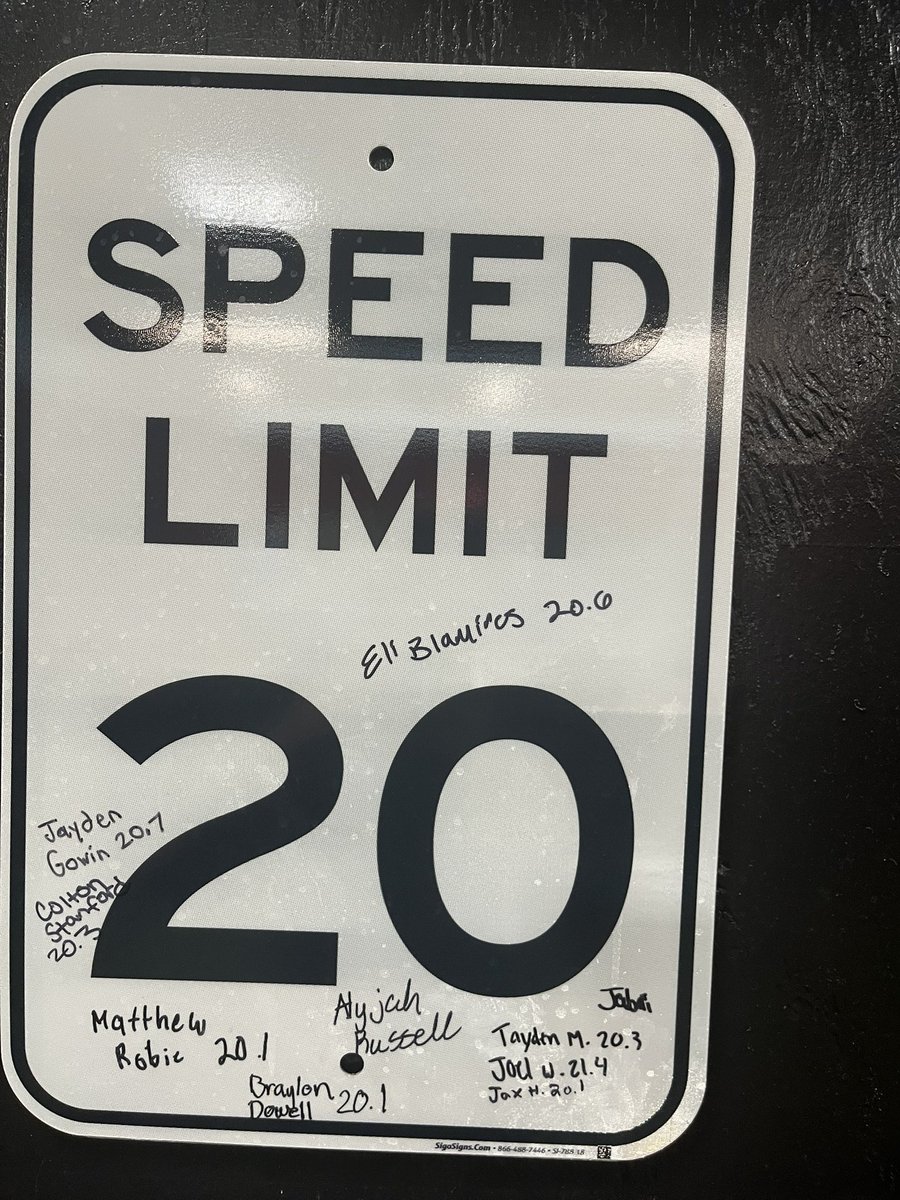 SPEED
LIMIT
Eli Blamires 20.6
20
Jayden
Gowin 20.7
Colton
Stanford
20.3
Matthew
Robie 20.1
Alyjah
Russell
Braylon
Dowell 20.1
Jabari
Tayden M. 20.3
Joel W. 21.4
Jax H. 20.1
SigoSigns.Com • 866-488-7446 •